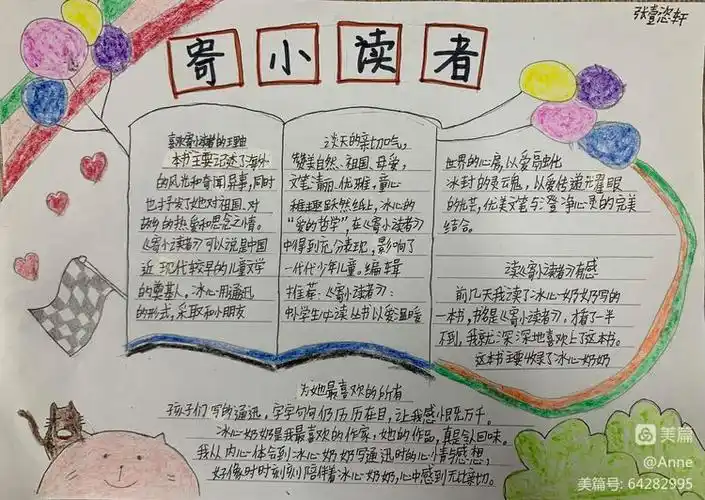 张壹恣轩
寄小读者
喜欢寄小读者的理由
本书主要记述了海外
的风光和奇闻异事,同时
也抒发了她对祖国、对
故乡的热爱和思念之情。
《寄小读者》可以说是中国
近现代较早的儿童文学
的奠基人,冰心用通讯
的形式,采取和小朋友
谈天的亲切口吃,
赞美自然、祖国、母爱,
文笔清丽、优雅,童心
稚趣跃然纸上,冰心的
“爱的哲学”,在《寄小读者》
中得到充分表现,影响了
一代代少年儿童。编辑
推荐:《寄小读者》:
中外学生中读丛书以爱温暖
世界的心房,以爱融化
冰封的灵魂,以爱传递耀眼
的光芒,优美文笔与澄净心灵的完美
结合。
读《寄小读者》有感
前几天我读了冰心奶奶写的
一本书,书名是《寄小读者》,才看了一半
不到,我就深深地喜欢上了这本书。
这本书主要收录了冰心奶奶
为她最喜欢的所有
孩子们写的通迅,字字句句仍历历在目,让我感慨万千。
冰心奶奶是我最喜欢的作家,她的作品,真是令回味。
我从内心体会到冰心奶奶写通迅时的心情与感想,
好像时时刻刻陪伴着冰心奶奶,心中感到无比亲切。
美篇
@Anne
美篇号: 64282995